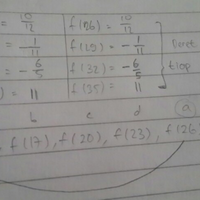 = 10/12 f(26) = 10/12
= 1/11 f(29) = -1/11 Deret
= -6/5 f(32) = -6/5
) = 11 f(35) = 11
b c d a
f(17), f(20), f(23), f(26)